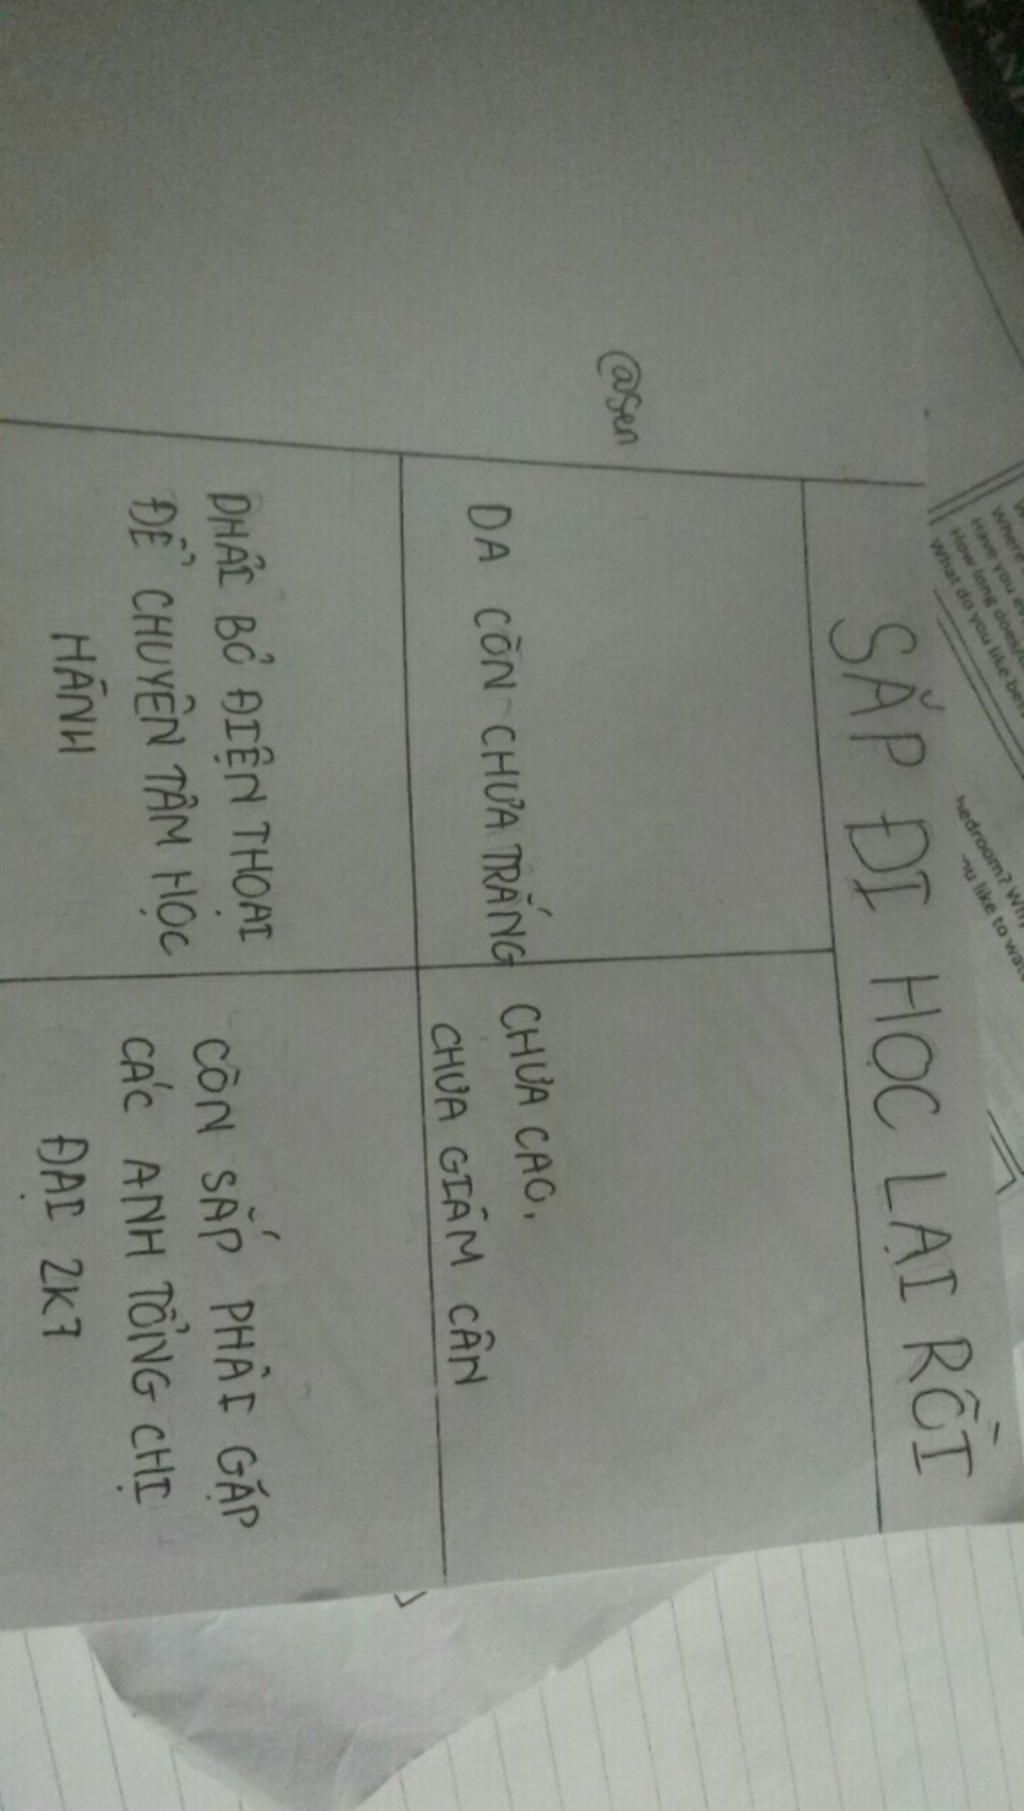 SẮP ĐI HỌC LẠI RỒI
DA CÒN CHƯA TRẮNG
CHƯA CAO,
CHƯA GIẢM CÂN
PHẢI BỎ ĐIỆN THOẠI
ĐỂ CHUYÊN TÂM HỌC
HÀNH
CÒN SẮP PHẢI GẶP
CÁC ANH TỔNG CHỊ
ĐẠI 2K7
@Sen
Have you
How long does
What do you like
bedroom?
like to